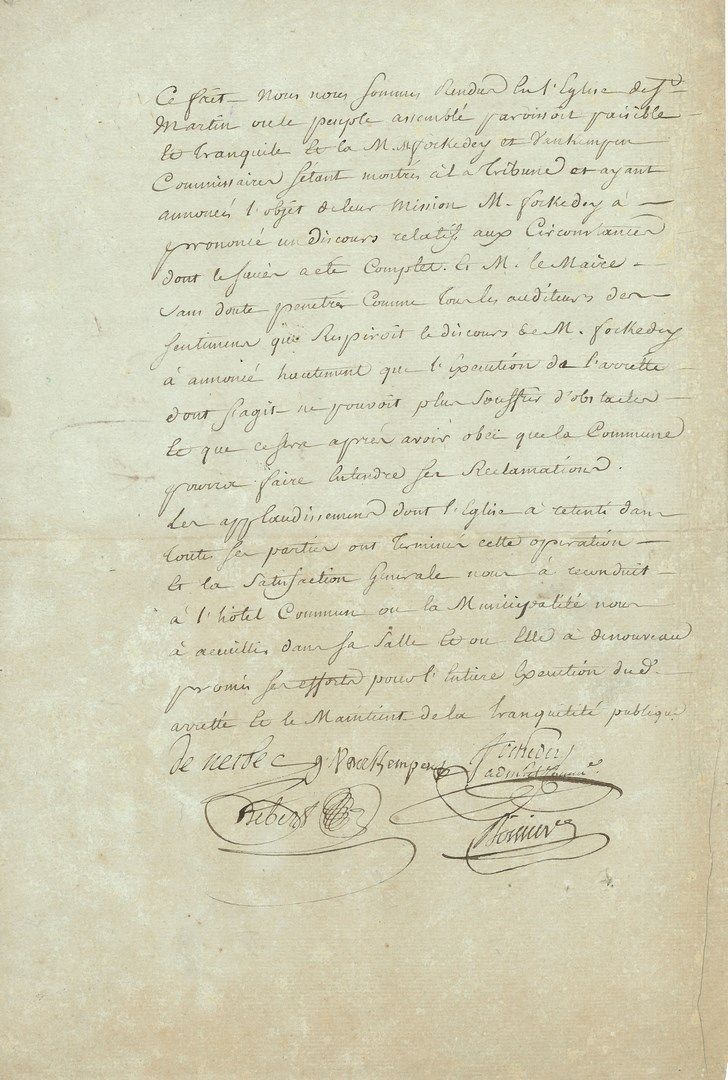 Ce fait — Nous nous sommes Rendus En l'Eglise de St
Martin ou le peuple assemblé paroissoit paisible
Et Tranquile Et la M. M fockedey et Vankempen
Commissaires s'étant montrés à la Tribune et ayant
annoncés l'objet de leur Mission M. fockedey à —
prononcé un discours relatif aux Circonstances
dont le succès a eté Complet. Et M. le Maire —
sans doute penetré Comme Tous les auditeurs des —
sentimens que Respiroit le discours de M. fockedey
à annoncé hautement que l'Execution de l'arretté —
dont s'agit ne pouvoit plus souffrir d'obstacles —
Et que ce sera après avoir obei que la Commune
pourra faire Entendre ses Reclamations.
Les applaudissemens dont l'Eglise à retenti dans
toutes ses parties ont Terminés cette operation —
Et la Satisfaction Generale nous à reconduit —
à l'hôtel Commun ou la Municipalité nous
à accueillis dans sa Salle Et ou Elle à denouveau
promis ses efforts pour l'Entiere Execution dud.
arretté Et le Maintient de la Tranquilité publique
g Vankempen fockedey